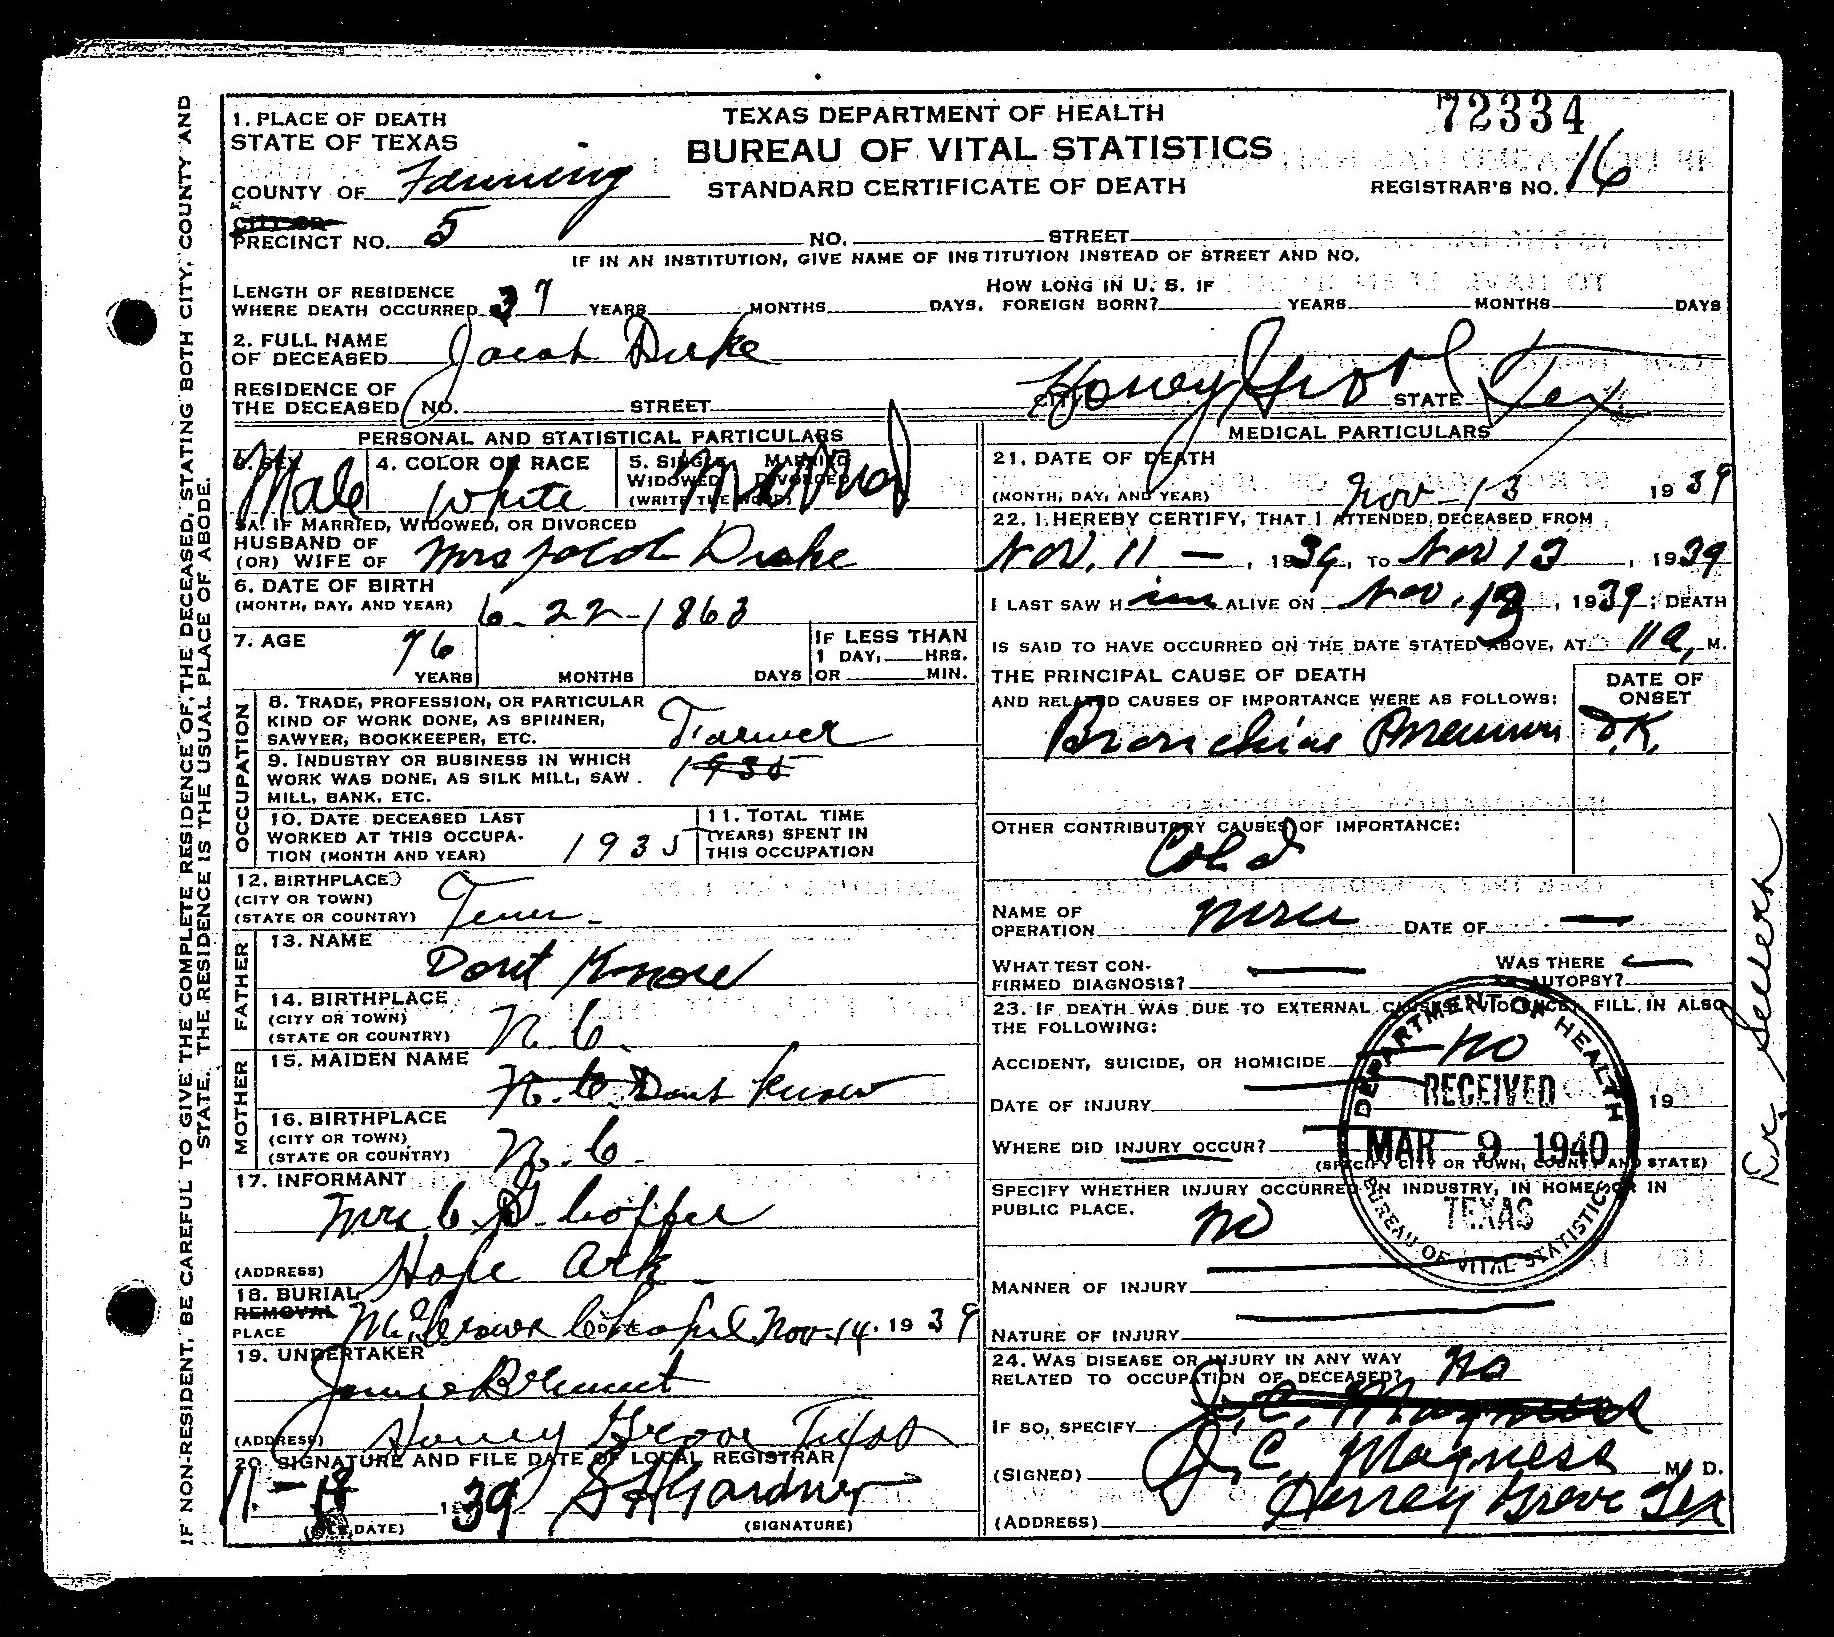 TEXAS DEPARTMENT OF HEALTH
BUREAU OF VITAL STATISTICS
STANDARD CERTIFICATE OF DEATH
72334
REGISTRAR'S NO. 16
1. PLACE OF DEATH
STATE OF TEXAS
COUNTY OF Fanning
CITY OR
PRECINCT NO. 5 NO. STREET
IF IN AN INSTITUTION, GIVE NAME OF INSTITUTION INSTEAD OF STREET AND NO.
LENGTH OF RESIDENCE
WHERE DEATH OCCURRED 37 YEARS MONTHS DAYS.
HOW LONG IN U. S. IF
FOREIGN BORN? YEARS MONTHS DAYS
2. FULL NAME
OF DECEASED Jacob Duke
RESIDENCE OF
THE DECEASED NO. STREET Honey Grove STATE Tex
PERSONAL AND STATISTICAL PARTICULARS
3. SEX Male
4. COLOR OR RACE White
5. SINGLE MARRIED
WIDOWED DIVORCED
(WRITE THE WORD) Married
5A. IF MARRIED, WIDOWED, OR DIVORCED
HUSBAND OF
(OR) WIFE OF Mrs Jacob Duke
6. DATE OF BIRTH
(MONTH, DAY, AND YEAR) 6-22-1863
7. AGE 76
YEARS MONTHS DAYS
IF LESS THAN
1 DAY, HRS.
OR MIN.
OCCUPATION
8. TRADE, PROFESSION, OR PARTICULAR
KIND OF WORK DONE, AS SPINNER,
SAWYER, BOOKKEEPER, ETC. Farmer
9. INDUSTRY OR BUSINESS IN WHICH
WORK WAS DONE, AS SILK MILL, SAW
MILL, BANK, ETC. 1935
10. DATE DECEASED LAST
WORKED AT THIS OCCUPA-
TION (MONTH AND YEAR) 1935
11. TOTAL TIME
(YEARS) SPENT IN
THIS OCCUPATION
12. BIRTHPLACE
(CITY OR TOWN)
(STATE OR COUNTRY) Tenn.
FATHER
13. NAME Dont Know
14. BIRTHPLACE
(CITY OR TOWN)
(STATE OR COUNTRY) N.C.
MOTHER
15. MAIDEN NAME N.C. Dont Know
16. BIRTHPLACE
(CITY OR TOWN)
(STATE OR COUNTRY) N.C.
17. INFORMANT
Mrs C.
(ADDRESS) Hope Ark
18. BURIAL
REMOVAL
PLACE Chapel Nov-14. 1939
19. UNDERTAKER
(ADDRESS) Honey Grove Texas
20. SIGNATURE AND FILE DATE OF LOCAL REGISTRAR
11- 1939 Gardner
(FILE DATE) (SIGNATURE)
MEDICAL PARTICULARS
21. DATE OF DEATH
(MONTH, DAY, AND YEAR) Nov-13 1939
22. I HEREBY CERTIFY, THAT I ATTENDED DECEASED FROM
Nov. 11 —, 1939, TO Nov 13, 1939
I LAST SAW H im ALIVE ON Nov. 13, 1939; DEATH
IS SAID TO HAVE OCCURRED ON THE DATE STATED ABOVE, AT 11a, M.
THE PRINCIPAL CAUSE OF DEATH
AND RELATED CAUSES OF IMPORTANCE WERE AS FOLLOWS:
DATE OF
ONSET
D.K.
OTHER CONTRIBUTORY CAUSES OF IMPORTANCE:
Cold
NAME OF
OPERATION DATE OF —
WHAT TEST CON-
FIRMED DIAGNOSIS? —
WAS THERE
AN AUTOPSY? —
23. IF DEATH WAS DUE TO EXTERNAL CAUSES (VIOLENCE), FILL IN ALSO
THE FOLLOWING:
ACCIDENT, SUICIDE, OR HOMICIDE no
DATE OF INJURY 19
WHERE DID INJURY OCCUR?
(SPECIFY CITY OR TOWN, COUNTY AND STATE)
SPECIFY WHETHER INJURY OCCURRED IN INDUSTRY, IN HOME, OR IN
PUBLIC PLACE. no
MANNER OF INJURY
NATURE OF INJURY
24. WAS DISEASE OR INJURY IN ANY WAY
RELATED TO OCCUPATION OF DECEASED? no
IF SO, SPECIFY J. C. Magness
(SIGNED) J. C. Magness M. D.
(ADDRESS) Honey Grove Tex
DEPARTMENT OF HEALTH
RECEIVED
MAR 9 1940
TEXAS
BUREAU OF VITAL STATISTICS
IF NON-RESIDENT, BE CAREFUL TO GIVE THE COMPLETE RESIDENCE OF THE DECEASED, STATING BOTH CITY, COUNTY AND
STATE. THE RESIDENCE IS THE USUAL PLACE OF ABODE.